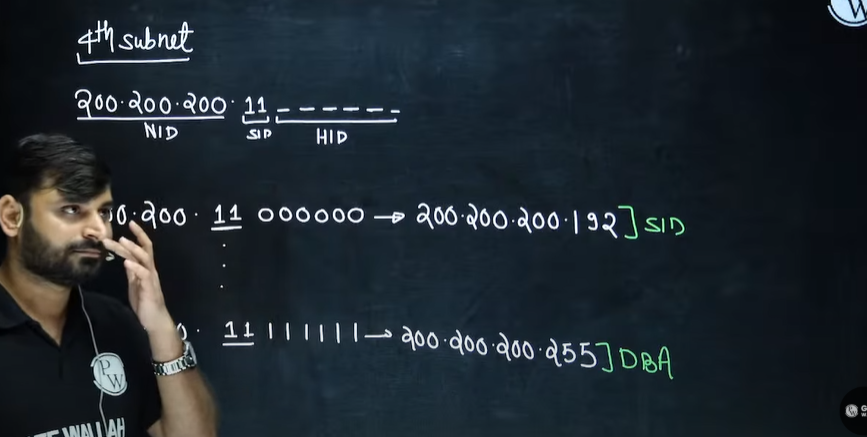 4th subnet
200.200.200. 11 _ _ _ _ _ _
NID SID HID
0.200. 11 000000 → 200.200.200.192] SID
. 11 111111 → 200.200.200.255] DBA
PW
WALLAH